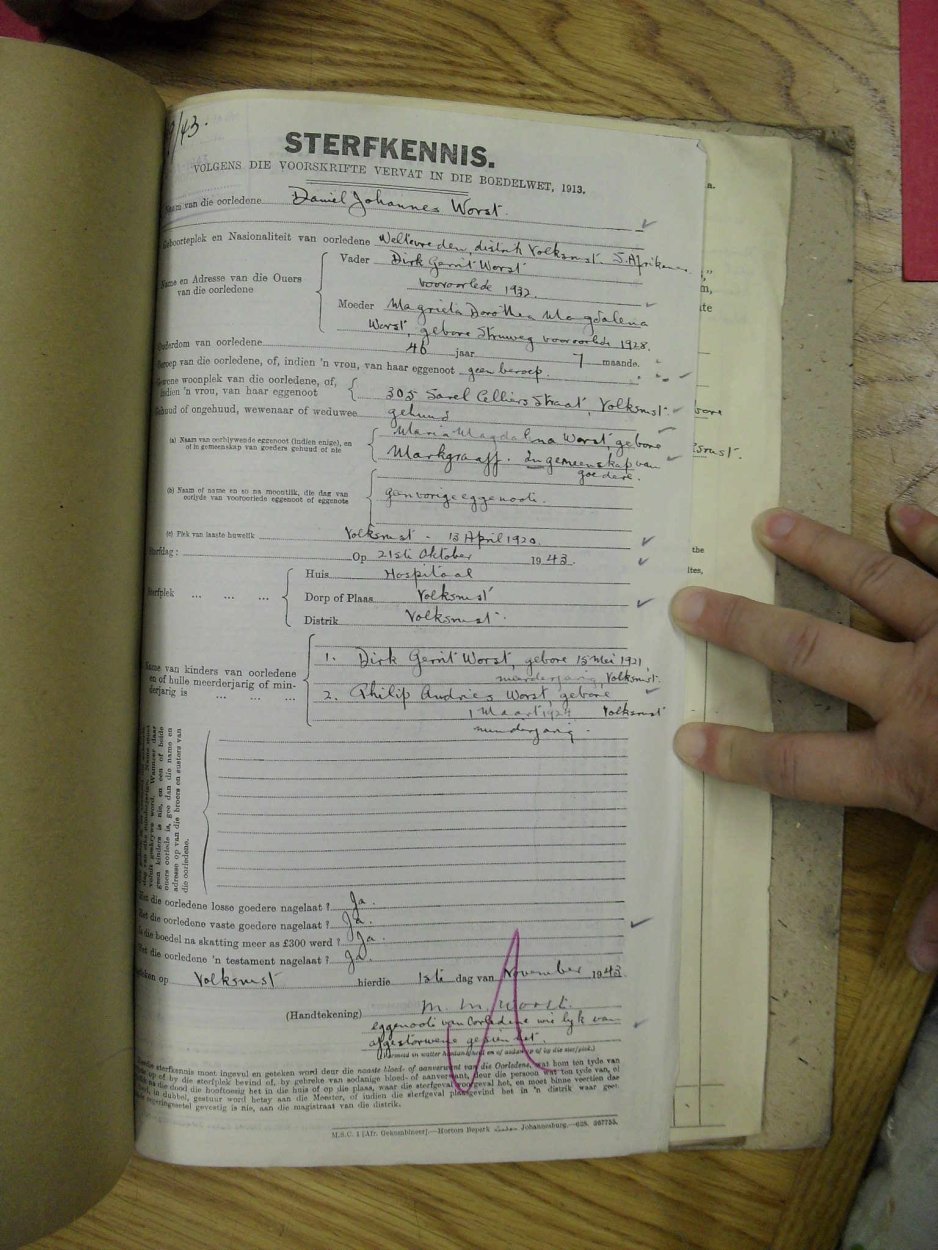 9/43.
STERFKENNIS.
VOLGENS DIE VOORSKRIFTE VERVAT IN DIE BOEDELWET, 1913.
Naam van die oorledene Daniel Johannes Worst.
Geboorteplek en Nasionaliteit van oorledene Weltevreden, distrik Volksrust. S. Afrikaner
Vader Dirk Gerrit Worst
Name en Adresse van die Ouers van die oorledene
vooroorlede 1932.
Moeder Magrieta Dorothea Magdalena
Worst, gebore Struweg vooroorlede 1928.
Ouderdom van oorledene 46 jaar 7 maande.
Beroep van die oorledene, of, indien 'n vrou, van haar eggenoot geen beroep.
Gewone woonplek van die oorledene, of, indien 'n vrou, van haar eggenoot
305 Sarel Celliers Straat, Volksrust
Gehuud of ongehuud, wewenaar of weduwee gehuud
(a) Naam van oorblywende eggenoot (indien enige), en of in gemeenskap van goedere gehuud of nie
Maria Magdalena Worst, gebore
Markgraaff. In gemeenskap van
goedere.
(b) Naam of name en so na moontlik, die dag van oorlyde van vooroorlede eggenoot of eggenote
geen vorige eggenoote.
(c) Plek van laaste huwelik Volksrust - 13 April 1920.
Sterfdag: Op 21ste Oktober 1943.
Huis Hospitaal
Sterfplek ... ... ... Dorp of Plaas Volksrust
Distrik Volksrust.
Name van kinders van oorledene en of hulle meerderjarig of minderjarig is ... ... ...
1. Dirk Gerrit Worst, gebore 15 Mei 1921,
meerderjarig, Volksrust.
2. Philip Andries Worst, gebore
1 Maart 1924 Volksrust
minderjarig.
geen kinders is nie, en een of beide
ouers oorlede is, gee dan die name en
adresse op van die broers en susters van
die oorledene.
Het die oorledene losse goedere nagelaat? Ja.
Het die oorledene vaste goedere nagelaat? Ja.
Is die boedel na skatting meer as £300 werd? Ja.
Het die oorledene 'n testament nagelaat? Ja.
Geteken op Volksrust hierdie 1ste dag van November 1943.
(Handtekening) M. M. Worst.
eggenoote van Oorledene wie lyk van
afgestorwene gesien het.
M.B.C. 1 [Afr. Gekombineer].—Hortors Beperk Johannesburg.—628. 367755.